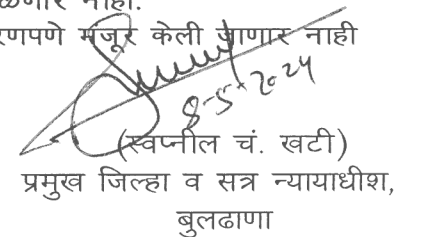 रणपणे मंजूर केली जाणार नाही
8-5-2024
(स्वप्नील चं. खटी)
प्रमुख जिल्हा व सत्र न्यायाधीश,
बुलढाणा